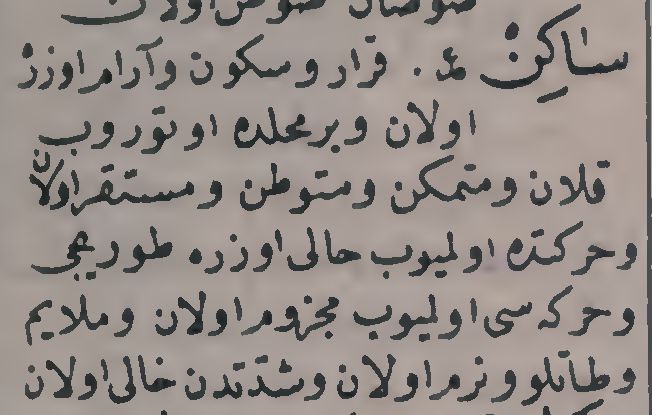 ساكن ع. قرار و سكون و آرام اوزره
اولان و بر محلده اوتوروب
قلان و متمكن و متوطن و مستقر اولان
و حركتده اولميوب حالى اوزره طوريجى
و حركه سى اولميوب مجزوم اولان و ملايم
و طاتلو و نرم اولان و شدتدن خالى اولان